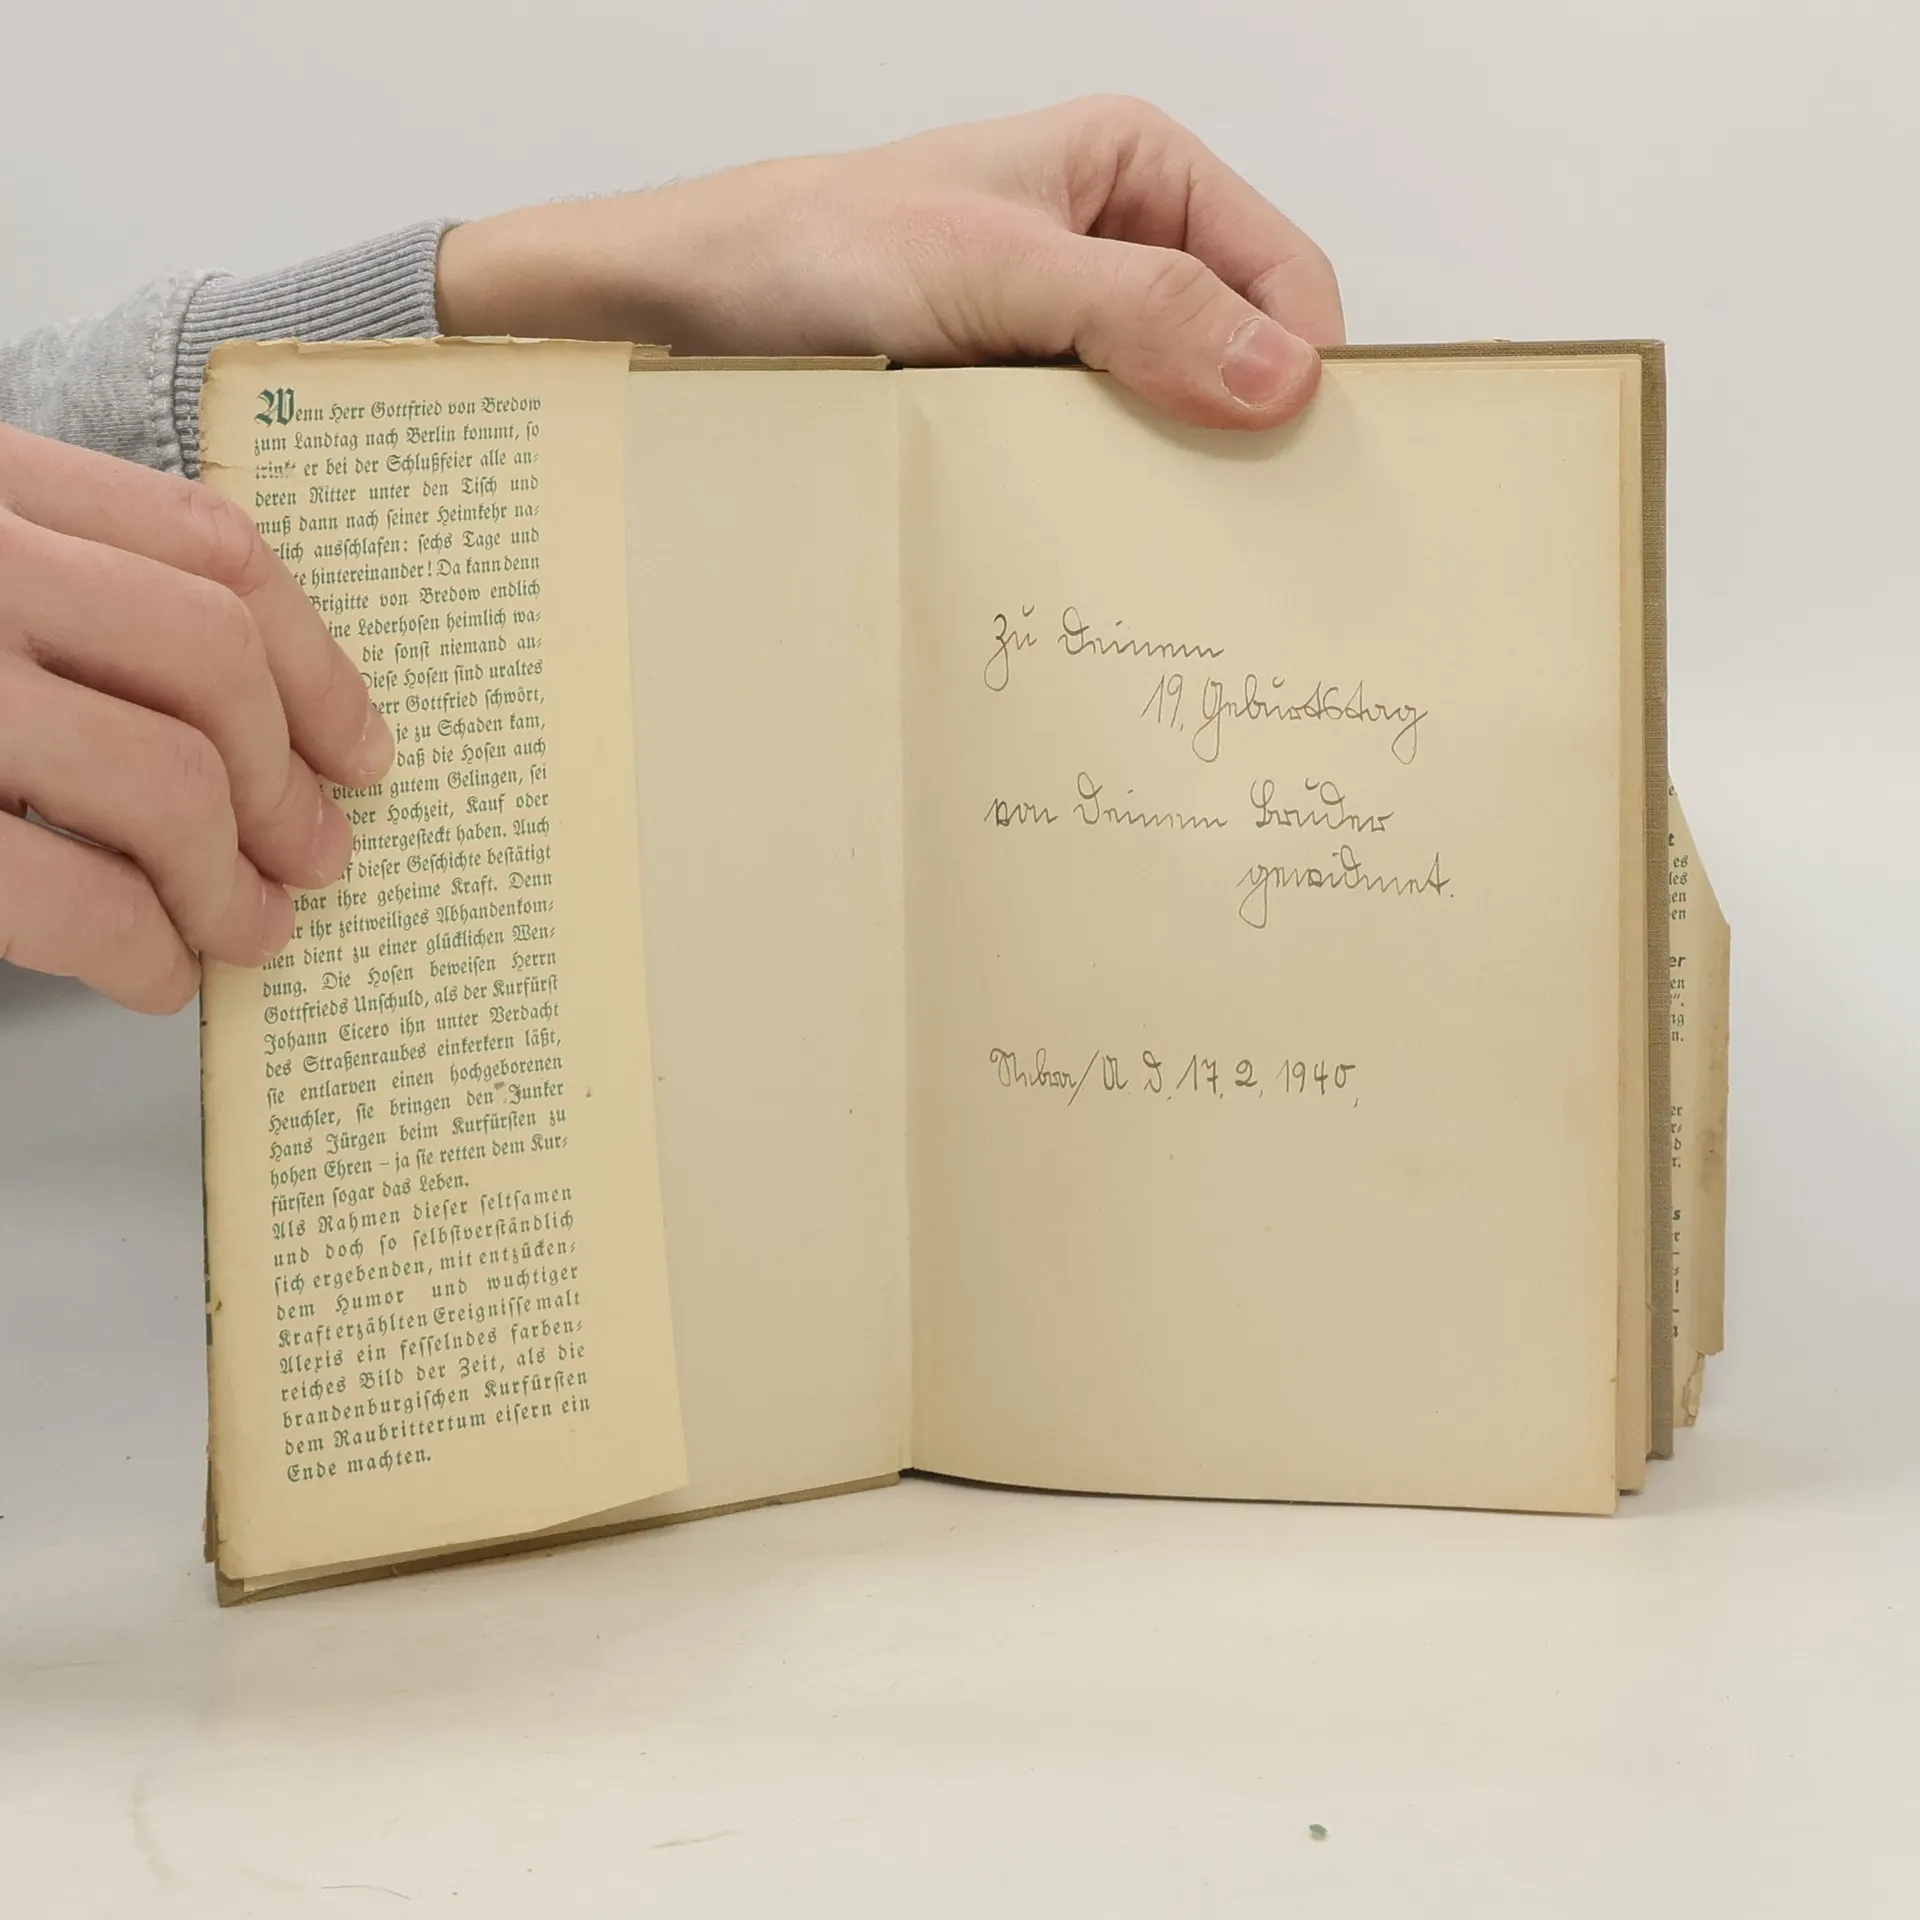 Wenn Herr Gottfried von Bredow
zum Landtag nach Berlin kommt, so
trinkt er bei der Schlußfeier alle an-
deren Ritter unter den Tisch und
muß dann nach seiner Heimkehr na-
rlich ausschlafen: sechs Tage und
te hintereinander! Da kann denn
Brigitte von Bredow endlich
ine Lederhosen heimlich wa-
die sonst niemand an-
Diese Hosen sind uraltes
Herr Gottfried schwört,
je zu Schaden kam,
daß die Hosen auch
vielem gutem Gelingen, sei
oder Hochzeit, Kauf oder
hintergesteckt haben. Auch
f dieser Geschichte bestätigt
nbar ihre geheime Kraft. Denn
r ihr zeitweiliges Abhandenkom-
men dient zu einer glücklichen Wen-
dung. Die Hosen beweisen Herrn
Gottfrieds Unschuld, als der Kurfürst
Johann Cicero ihn unter Verdacht
des Straßenraubes einkerkern läßt,
sie entlarven einen hochgeborenen
Heuchler, sie bringen den Junker
Hans Jürgen beim Kurfürsten zu
hohen Ehren – ja sie retten dem Kur-
fürsten sogar das Leben.
Als Rahmen dieser seltsamen
und doch so selbstverständlich
sich ergebenden, mit entzücken-
dem Humor und wuchtiger
Kraft erzählten Ereignisse malt
Alexis ein fesselndes farben-
reiches Bild der Zeit, als die
brandenburgischen Kurfürsten
dem Raubrittertum eisern ein
Ende machten.
Zu Deinem
19. Geburtstag
von Deinem Bruder
gewidmet.
Nebra/U. d. 17. 2. 1940.